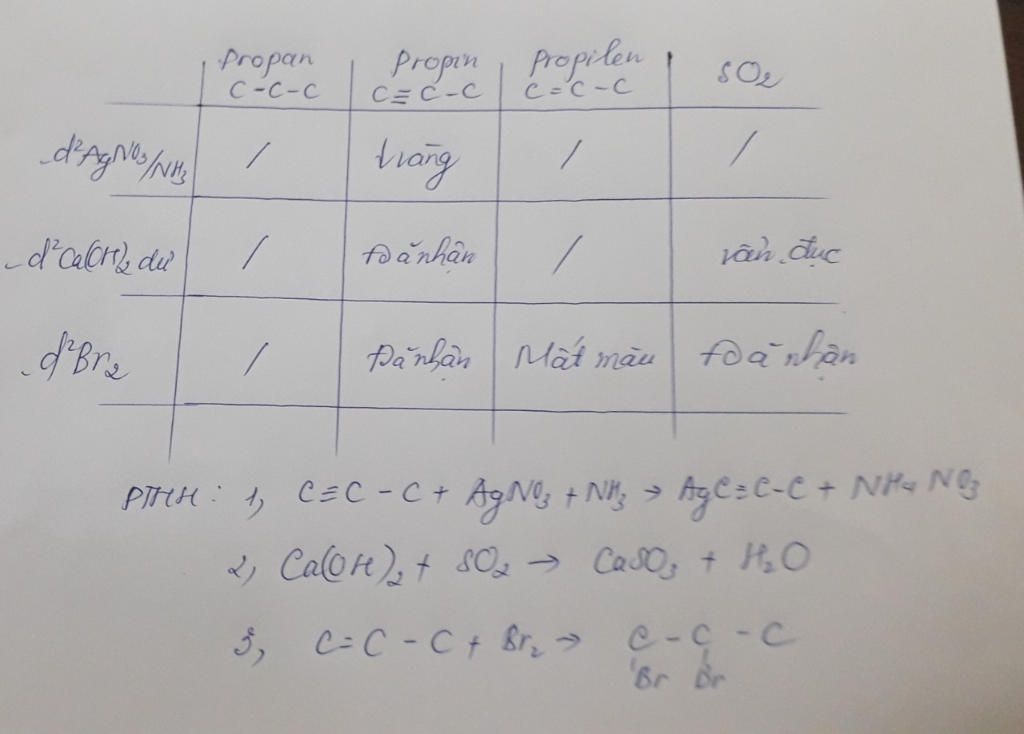 Propan Propin Propilen SO₂
C-C-C C≡C-C C=C-C
-d²AgNO₃/NH₃ / trắng / /
-d²Ca(OH)₂ dư / Đã nhận / vẩn đục
-d²Br₂ / Đã nhận Mất màu Đã nhận
PTHH: 1, C≡C-C + AgNO₃ + NH₃ → AgC≡C-C + NH₄NO₃
2, Ca(OH)₂ + SO₂ → CaSO₃ + H₂O
3, C=C-C + Br₂ → C-C-C
Br Br